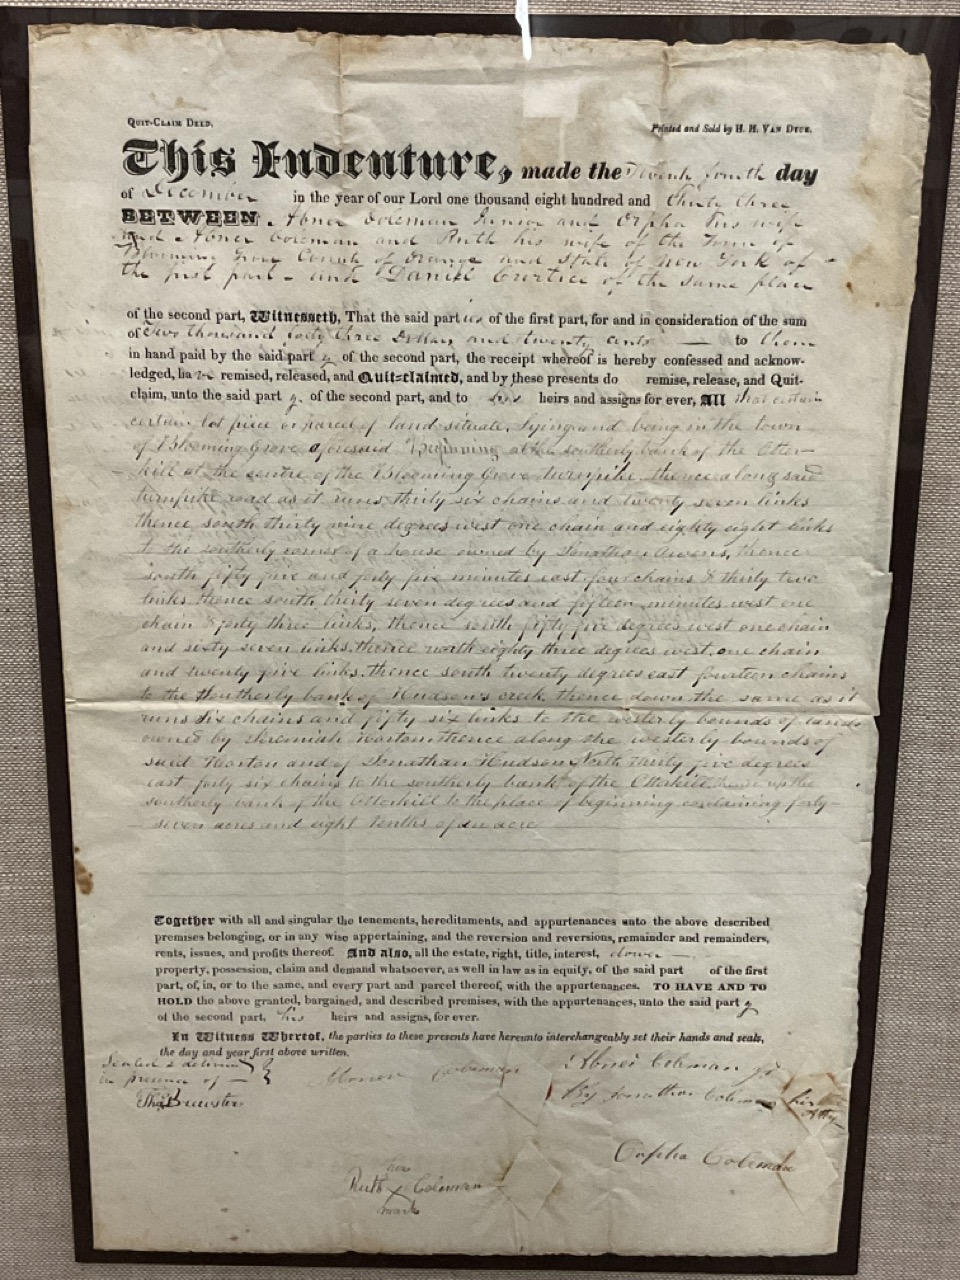 QUIT-CLAIM DEED.
Printed and Sold by H. H. VAN DYCK.
This Indenture, made the Twenty fourth day
of December in the year of our Lord one thousand eight hundred and Thirty three
BETWEEN Abner Coleman Junior and Orpha his wife
and Abner Coleman and Ruth his wife of the Town of
Blooming Grove County of Orange and State of New York of
the first part - and Daniel Curtice of the same place
of the second part, Witnesseth, That the said parties of the first part, for and in consideration of the sum
of Two thousand forty three Dollars and twenty cents — to them
in hand paid by the said party of the second part, the receipt whereof is hereby confessed and acknow-
ledged, have remised, released, and Quit-claimed, and by these presents do remise, release, and Quit-
claim, unto the said party of the second part, and to his heirs and assigns for ever, All that certain
certain lot piece or parcel of land situate, lying and being in the town
of Blooming Grove aforesaid Beginning at the southerly bank of the Otter-
kill at the centre of the Blooming Grove turnpike thence along said
turnpike road as it runs thirty six chains and twenty seven links
thence south thirty nine degrees west one chain and eighty eight links
to the southerly corner of a house owned by Jonathan Owens, thence
south fifty five and forty five minutes east four chains & thirty two
links thence south thirty seven degrees and fifteen minutes west one
chain & forty three links, thence south fifty five degrees west one chain
and sixty seven links, thence north eighty three degrees west, one chain
and twenty five links, thence south twenty degrees east fourteen chains
to the Southerly bank of Hudson's creek thence down the same as it
runs six chains and fifty six links to the westerly bounds of lands
owned by Jeremiah Horton thence along the westerly bounds of
said Horton and of Jonathan Hudson North thirty five degrees
east forty six chains to the southerly bank of the Otterkill thence up the
southerly bank of the Otterkill to the place of beginning containing forty-
seven acres and eight tenths of an acre
Together with all and singular the tenements, hereditaments, and appurtenances unto the above described
premises belonging, or in any wise appertaining, and the reversion and reversions, remainder and remainders,
rents, issues, and profits thereof. And also, all the estate, right, title, interest, dower —
property, possession, claim and demand whatsoever, as well in law as in equity, of the said part of the first
part, of, in, or to the same, and every part and parcel thereof, with the appurtenances. TO HAVE AND TO
HOLD the above granted, bargained, and described premises, with the appurtenances, unto the said party
of the second part, his heirs and assigns, for ever.
In Witness Whereof, the parties to these presents have hereunto interchangeably set their hands and seals,
the day and year first above written.
Sealed & delivered
in presence of —
Abner Coleman
Abner Coleman Jr
By Jonathan Coleman his Atty
Brewster
Orpha Coleman
her
Ruth X Coleman
mark